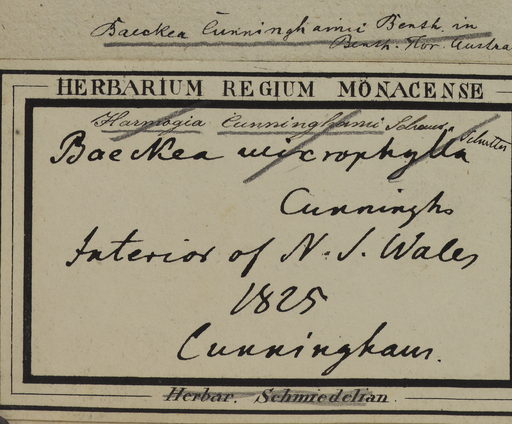 Baeckea Cunninghamii Benth. in
Benth. Flor. Austra
HERBARIUM REGIUM MONACENSE
Harmogia Cunninghamii Schauer
Baeckea microphylla
Cunningh
Interior of N. S. Wales
1825
Cunningham.
Herbar. Schmiedelian.